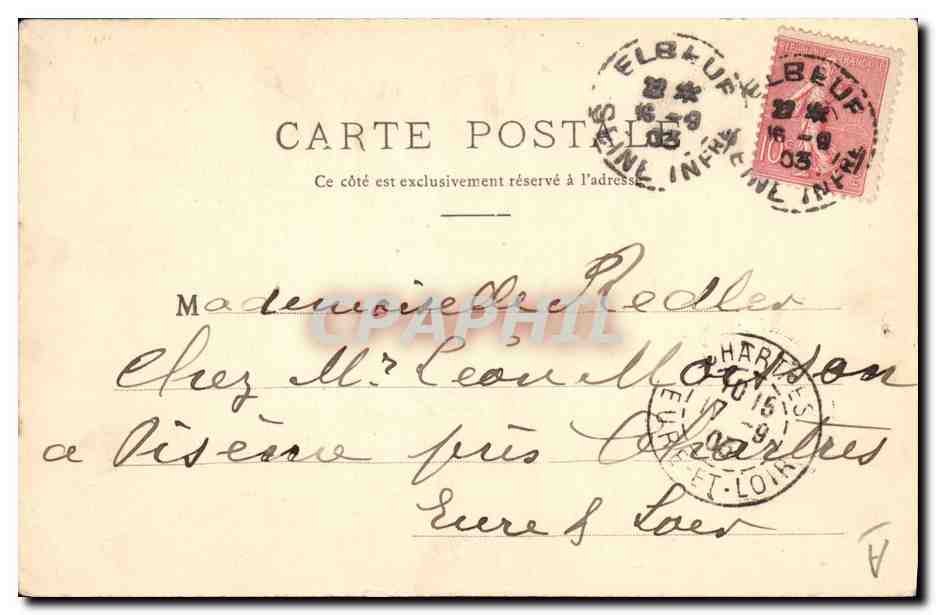 ELBEUF
16 - 9
03
SEINE INFRE
ELBEUF
16 - 9
03
SEINE INFRE
10
CARTE POSTALE
Ce côté est exclusivement réservé à l'adresse
Mademoiselle Redler
CPAPHIL
Chez Mr Léon
CHARTRES
10 15
17 - 9
03
EURE-ET-LOIR
a Oisème près Chartres
Eure & Loir
A